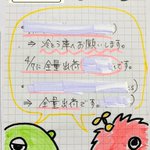 ⇒ 冷とう庫へお願いします。
4/7に 全量出荷 です。
⇒ 全量出荷です。